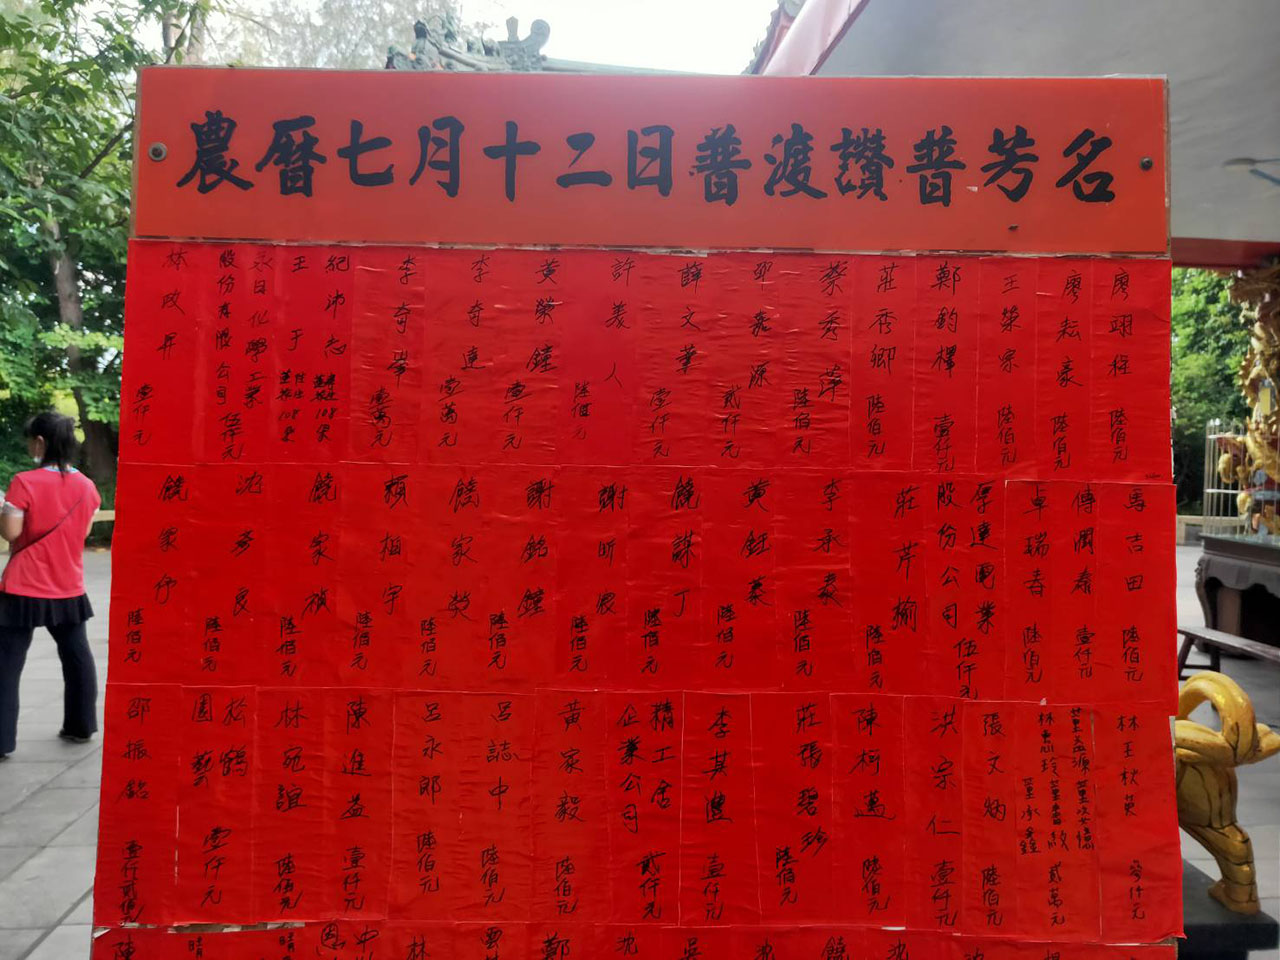 農曆七月十二日普渡讚普芳名
廖翊程 陸佰元
廖耘豪 陸佰元
王榮宗 陸佰元
鄭鈞檡 壹仟元
莊秀卿 陸佰元
蔡秀萍 陸佰元
邵嘉源 貳仟元
薛文華 壹仟元
許美人 陸佰元
黃榮鐘 壹仟元
李奇達 壹萬元
李奇峯 壹萬元
紀沛志
王于
永日化學工業
股份有限公司 伍仟元
林政昇 壹仟元
馬吉田 陸佰元
傅潤春 壹仟元
卓瑞春 陸佰元
厚達電業
股份公司 伍仟元
莊芹榆 陸佰元
李承泰 陸佰元
黃鈺棻 陸佰元
饒謀丁 陸佰元
謝昕宸 陸佰元
謝銘鐘 陸佰元
饒家熒 陸佰元
賴柏宇 陸佰元
饒家禎 陸佰元
沈秀良 陸佰元
饒家伃 陸佰元
林王枝英 參仟元
董益源 董姿億
林惠玲 董書
董承鑫 貳萬元
張文炳 陸佰元
洪宗仁 壹仟元
陳柯邁 陸佰元
莊張碧珍 陸佰元
李其灃 壹仟元
精工舍
企業公司 貳仟元
黃家毅 陸佰元
呂誌中 陸佰元
呂永郎 陸佰元
陳進益 壹仟元
林宛誼 陸佰元
松鶴
園藝 壹仟元
邵振銘 壹仟貳佰元